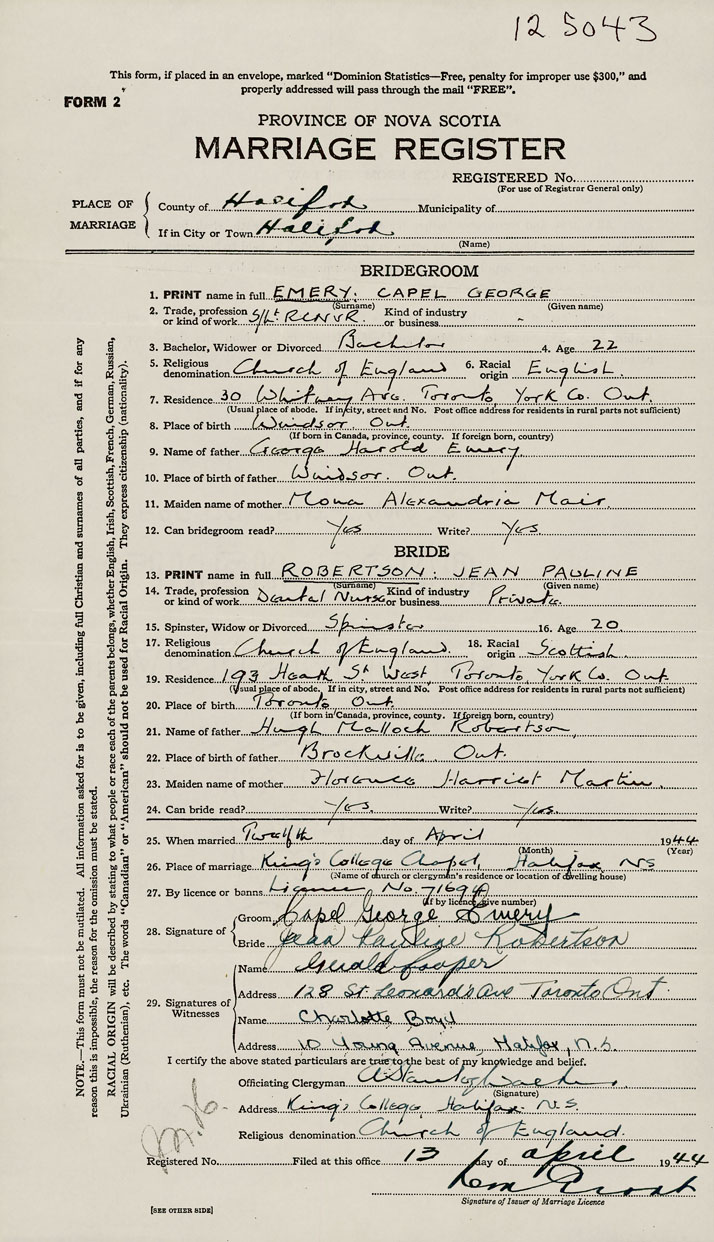 12 5043
This form, if placed in an envelope, marked "Dominion Statistics—Free, penalty for improper use $300," and
properly addressed will pass through the mail "FREE".
FORM 2
PROVINCE OF NOVA SCOTIA
MARRIAGE REGISTER
REGISTERED No.
(For use of Registrar General only)
PLACE OF MARRIAGE
County of Halifax Municipality of
If in City or Town Halifax
(Name)
BRIDEGROOM
1. PRINT name in full EMERY, CAPEL GEORGE
(Surname) (Given name)
2. Trade, profession or kind of work S/Lt. RCNVR. Kind of industry or business -
3. Bachelor, Widower or Divorced Bachelor 4. Age 22
5. Religious denomination Church of England 6. Racial origin English.
7. Residence 30 Whitney Ave. Toronto, York Co. Ont.
(Usual place of abode. If in city, street and No. Post office address for residents in rural parts not sufficient)
8. Place of birth Windsor Ont.
(If born in Canada, province, county. If foreign born, country)
9. Name of father George Harold Emery
10. Place of birth of father Windsor. Ont.
11. Maiden name of mother Mona Alexandria Mair.
12. Can bridegroom read? Yes Write? Yes.
BRIDE
13. PRINT name in full ROBERTSON. JEAN PAULINE
(Surname) (Given name)
14. Trade, profession or kind of work Dental Nurse Kind of industry or business Private.
15. Spinster, Widow or Divorced Spinster 16. Age 20.
17. Religious denomination Church of England. 18. Racial origin Scottish.
19. Residence 193 Heath St West, Toronto, York Co. Ont.
(Usual place of abode. If in city, street and No. Post office address for residents in rural parts not sufficient)
20. Place of birth Toronto Ont.
(If born in Canada, province, county. If foreign born, country)
21. Name of father Hugh Malloch Robertson,
22. Place of birth of father Brockville. Ont.
23. Maiden name of mother Florence Harriet Martin.
24. Can bride read? Yes. Write? Yes.
25. When married Twelfth day of April 1944
(Month) (Year)
26. Place of marriage King's College Chapel, Halifax NS
(Name of church or clergymen's residence or location of dwelling house)
27. By licence or banns Licence No. 71694
(If by licence, give number)
28. Signature of
Groom Capel George Emery
Bride Jean Pauline Robertson
29. Signatures of Witnesses
Name Gerald Cooper
Address 128 St. Leonards Ave Toronto Ont.
Name Charlotte Boyd
Address 10 Young Avenue, Halifax, N.S.
I certify the above stated particulars are true to the best of my knowledge and belief.
Officiating Clergyman A. Stanley Walker
(Signature)
Address King's College, Halifax. N.S.
Religious denomination Church of England.
Registered No. Filed at this office 13 day of april 1944
Signature of Issuer of Marriage Licence
[SEE OTHER SIDE]
NOTE.—This form must not be mutilated. All information asked for is to be given, including full Christian and surnames of all parties, and if for any
reason this is impossible, the reason for the omission must be stated.
RACIAL ORIGIN will be described by stating to what people or race each of the parents belongs, whether English, Irish, Scottish, French, German, Russian,
Ukrainian (Ruthenian), etc. The words "Canadian" or "American" should not be used for Racial Origin. They express citizenship (nationality).